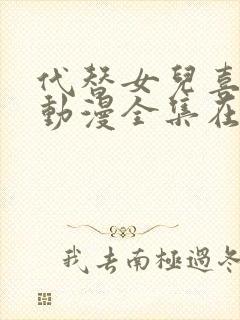 代替女兒喜
動漫全集在
我去南極過冬